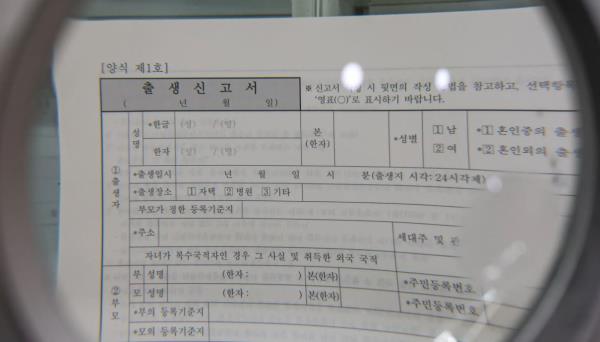 [양식 제1호]
출 생 신 고 서
( 년 월 일)
※ 신고서 시 뒷면의 작성 법을 참고하고, 선택항목
'영표(○)'로 표시하기 바랍니다.
① 출 생 자
성 명
*한글 (성) / (명)
한자 (성) / (명)
본 (한자)
*성별
① 남
② 여
*① 혼인중의 출생
*② 혼인외의 출생
*출생일시 년 월 일 시 분(출생지 시각: 24시각제)
*출생장소 ① 자택 ② 병원 ③ 기타
부모가 정한 등록기준지
*주소
세대주 및 관
자녀가 복수국적자인 경우 그 사실 및 취득한 외국 국적
② 부 모
부 성명 (한자: ) 본(한자) *주민등록번호
모 성명 (한자: ) 본(한자) *주민등록번호
*부의 등록기준지
*모의 등록기준지